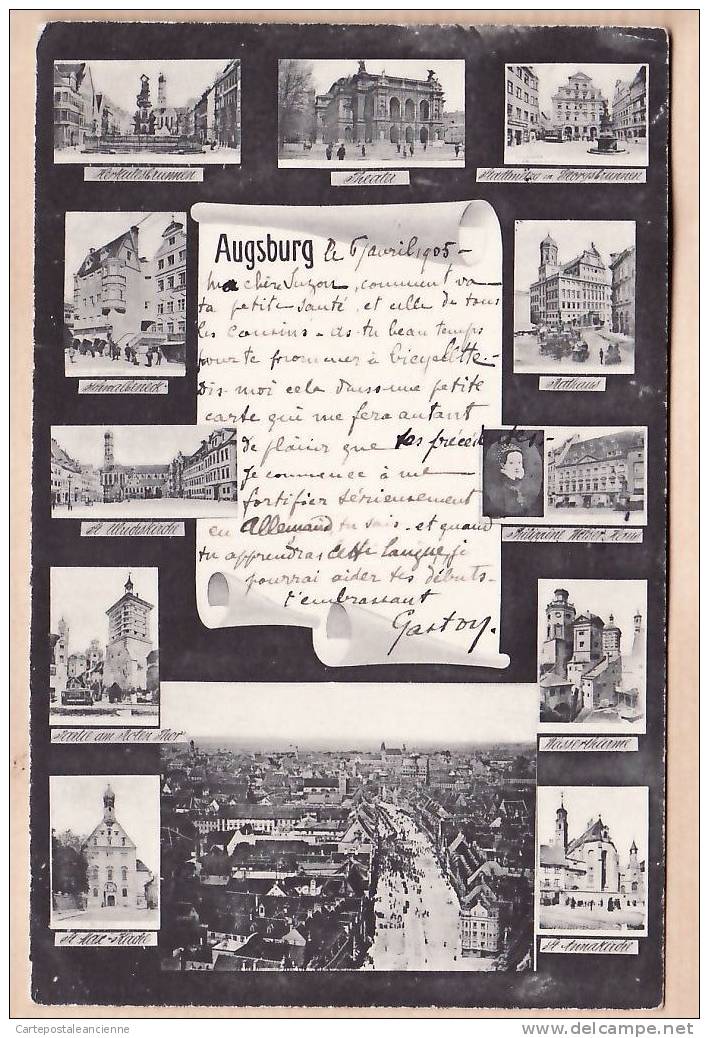 Herkulesbrunnen
Theater
Georgsbrunnen
Augsburg le 6 avril 1905 -
ma chère Suzon, comment va
ta petite santé, et celle de tous
les cousins - as-tu beau temps
pour te promener à bicyclette. -
Dis-moi cela dans une petite
carte qui me fera autant
de plaisir que tes précédentes. -
Je commence à me
fortifier sérieusement
en Allemand tu sais - et quand
tu apprendras cette langue, je
pourrai aider tes débuts -
t'embrassant
Gaston.
Schwalbeneck
Rathaus
St Ulrichskirche
Philippine Welser Haus
Partie am Roten Thor
Wasserthürme
St Gal-Kirche
St Annakirche
Cartepostaleancienne
delcampe.net